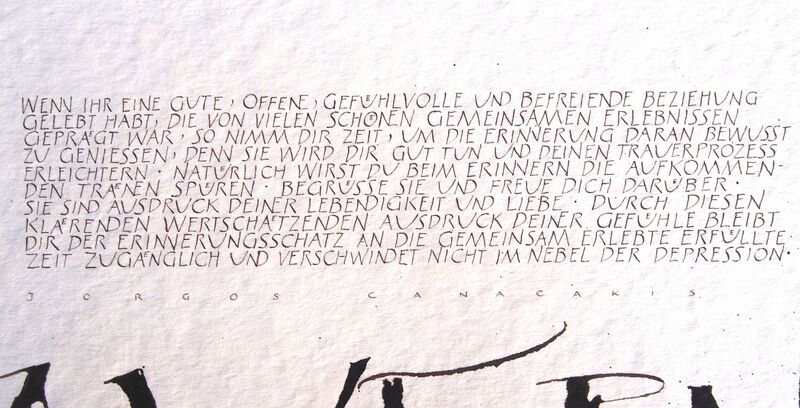 WENN IHR EINE GUTE, OFFENE, GEFÜHLVOLLE UND BEFREIENDE BEZIEHUNG
GELEBT HABT, DIE VON VIELEN SCHÖNEN GEMEINSAMEN ERLEBNISSEN
GEPRÄGT WAR, SO NIMM DIR ZEIT, UM DIE ERINNERUNG DARAN BEWUSST
ZU GENIESSEN, DENN SIE WIRD DIR GUT TUN UND DEINEN TRAUERPROZESS
ERLEICHTERN · NATÜRLICH WIRST DU BEIM ERINNERN DIE AUFKOMMEN-
DEN TRÄNEN SPÜREN · BEGRÜSSE SIE UND FREUE DICH DARÜBER ·
SIE SIND AUSDRUCK DEINER LEBENDIGKEIT UND LIEBE · DURCH DIESEN
KLÄRENDEN WERTSCHÄTZENDEN AUSDRUCK DEINER GEFÜHLE BLEIBT
DIR DER ERINNERUNGSSCHATZ AN DIE GEMEINSAM ERLEBTE ERFÜLLTE
ZEIT ZUGÄNGLICH UND VERSCHWINDET NICHT IM NEBEL DER DEPRESSION·
JORGOS CANACAKIS